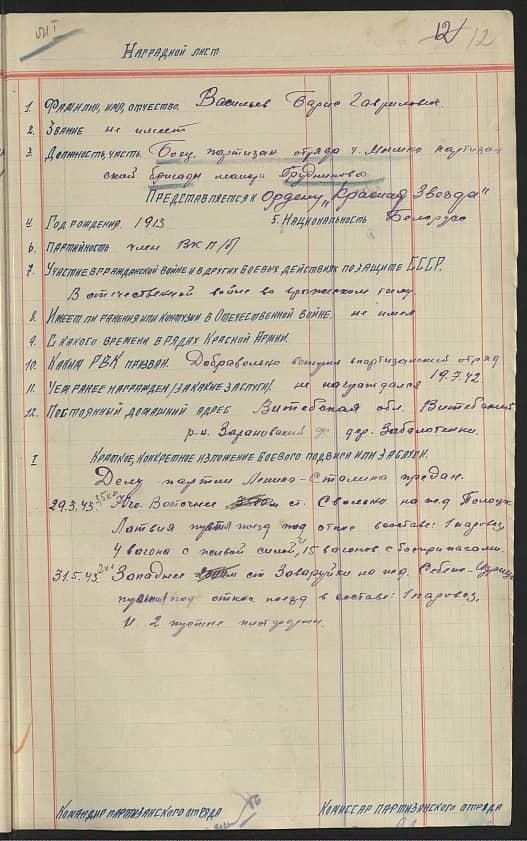 12 12
Наградной лист
1. Фамилия, имя, отчество. Васильев Барис Гаврилович
2. Звание не имеет
3. Должность, часть. Боец партизан отряда т. партизан
ской бригады майора
Представляется к Ордену "Красная Звезда"
4 Год рождения. 1913 5. Национальность Беларус
6. Партийность член ВКП/б/
7. Участие в гражданской войне и в других боевых действиях по защите СССР.
В отечественной войне во вражеском тылу
8. Имеет ли ранения или контузии в Отечественной войне. не имел
9. С какого времени в рядах Красной Армии.
10. Каким РВК призван. Добравольно вступил впартизанский отряд
19.7.42
11. Чем ранее награжден /за какие заслуги/ не награждался
12. Постоянный домашний адрес Витебская обл. Витебский
р-н. дер. Забалотинки
I Краткое, конкретное изложение боевого подвига или заслуги.
Делу партии Ленина-Сталина предан.
29.3.43 Юго. Восточнее ст. Свольна на жд Полоцк-
Латвия пустил поезд под откос в составе: 1 паровоз
4 вагона с живой силой, и 15 вагонов с боеприпасами.
31.5.43 2 км Западнее ст Заваруйки на жд. Себеж-
пустил под откос поезд в составе: 1 паровоз,
и 2 пустые платформы.
Командир партизанского отряда Комиссар партизанского отряда